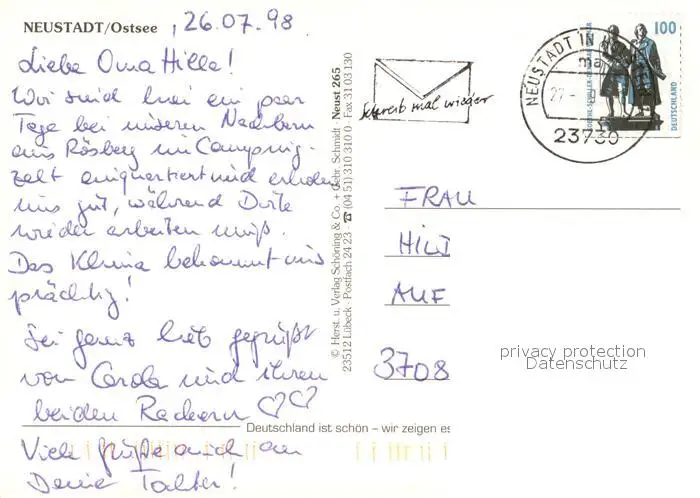 NEUSTADT/Ostsee , 26.07.98
Liebe Oma Hille!
Wir sind hier ein paar
Tage bei unseren Nachbarn
aus Rösberg im Camping-
zelt einquartiert und erholen
uns gut, während Dörte
wieder arbeiten muß.
Das Klima bekommt uns
prächtig!
Sei ganz lieb gegrüßt
von Carola und ihren
beiden Rackern
Viele Grüße auch an
Deine Tochter!
© Herst. u. Verlag Schöning & Co. + Gebr. Schmidt · Neust 265
23512 Lübeck · Postfach 24 23 · ☎ (04 51) 310 310 0 · Fax 31 03 130
Schreib mal wieder
NEUSTADT IN
23730
100
DEUTSCHLAND
FRAU
HILD
AUF
5708
privacy protection
Datenschutz
Deutschland ist schön – wir zeigen es